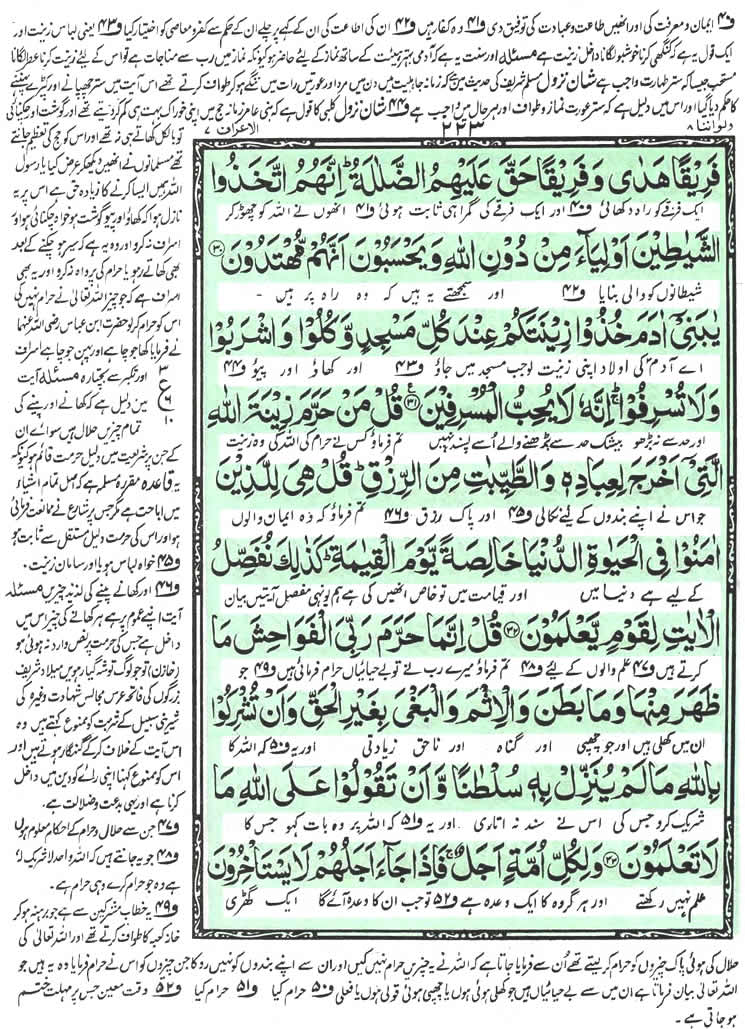 ف۴۰ ایمان و معرفت کی اور انھیں طاعت و عبادت کی توفیق دی ف۴۱ وہ کفار ہیں ف۴۲ ان کی اطاعت کی ان کے کہے پر چلے ان کے حکم سے کفر و معاصی کو اختیار کیا ف۴۳ یعنی لباس زینت اور
ایک قول یہ ہے کہ کنگھی کرنا خوشبو لگانا داخل زینت ہے مسئلہ اور سنت یہ ہے کہ آدمی بہتر ہیئت کے ساتھ نماز کے لئے حاضر ہو کیونکہ نماز میں رب سے مناجات ہے تو اس کے لئے زینت کرنا عطر لگانا
مستحب جیسا کہ ستر طہارت واجب ہے شان نزول مسلم شریف کی حدیث میں ہے کہ زمانہ جاہلیت میں دن میں مرد اور عورتیں رات میں ننگے ہو کر طواف کرتے تھے اس آیت میں ستر چھپانے اور کپڑے پہننے
کا حکم دیا گیا اور اس میں دلیل ہے کہ ستر عورت نماز و طواف اور ہر حال میں واجب ہے ف۴۴ شان نزول کلبی کا قول ہے کہ بنی عامر زمانہ حج میں اپنی خوراک بہت ہی کم کر دیتے تھے اور گوشت اور چکنائی
ولو اننا ۸
۲۲۳
الاعراف ۷
فَرِيْقًا هَدٰى وَ فَرِيْقًا حَقَّ عَلَيْهِمُ الضَّلٰلَةُ ؕ اِنَّهُمُ اتَّخَذُوا
ایک فرقے کو راہ دکھائی ف۴۰ اور ایک فرقے کی گمراہی ثابت ہوئی ف۴۱ انھوں نے اللہ کو چھوڑ کر
الشَّيٰطِيْنَ اَوْلِيَآءَ مِنْ دُوْنِ اللّٰهِ وَ يَحْسَبُوْنَ اَنَّهُمْ مُّهْتَدُوْنَ ﴿۳۰﴾
شیطانوں کو والی بنایا ف۴۲ اور سمجھتے یہ ہیں کہ وہ راہ پر ہیں -
يٰبَنِىْۤ اٰدَمَ خُذُوْا زِيْنَتَكُمْ عِنْدَ كُلِّ مَسْجِدٍ وَّ كُلُوْا وَ اشْرَبُوْا
اے آدم کی اولاد اپنی زینت لو جب مسجد میں جاؤ ف۴۳ اور کھاؤ اور پیؤ ف۴۴
وَ لَا تُسْرِفُوْا ۚ اِنَّهٗ لَا يُحِبُّ الْمُسْرِفِيْنَ ﴿۳۱﴾ قُلْ مَنْ حَرَّمَ زِيْنَةَ اللّٰهِ
اور حد سے نہ بڑھو بیشک حد سے بڑھنے والے اُسے پسند نہیں تم فرماؤ کس نے حرام کی اللہ کی وہ زینت
الَّتِىْۤ اَخْرَجَ لِعِبَادِهٖ وَ الطَّيِّبٰتِ مِنَ الرِّزْقِ ؕ قُلْ هِىَ لِلَّذِيْنَ
جو اس نے اپنے بندوں کے لئے نکالی ف۴۵ اور پاک رزق ف۴۶ تم فرماؤ کہ وہ ایمان والوں
اٰمَنُوْا فِى الْحَيٰوةِ الدُّنْيَا خَالِصَةً يَّوْمَ الْقِيٰمَةِ ؕ كَذٰلِكَ نُفَصِّلُ
کے لیے ہے دنیا میں اور قیامت میں تو خاص انھیں کی ہے ہم یونہی مفصل آیتیں بیان
الْاٰيٰتِ لِقَوْمٍ يَّعْلَمُوْنَ ﴿۳۲﴾ قُلْ اِنَّمَا حَرَّمَ رَبِّىَ الْفَوَاحِشَ مَا
کرتے ہیں ف۴۷ علم والوں کے لئے ف۴۸ تم فرماؤ میرے رب نے تو بے حیائیاں حرام فرمائی ہیں ف۴۹ جو
ظَهَرَ مِنْهَا وَ مَا بَطَنَ وَ الْاِثْمَ وَ الْبَغْىَ بِغَيْرِ الْحَقِّ وَ اَنْ تُشْرِكُوْا
ان میں کھلی ہیں اور جو چھپی اور گناہ اور ناحق زیادتی اور یہ ف۵۰ کہ اللہ کا
بِاللّٰهِ مَا لَمْ يُنَزِّلْ بِهٖ سُلْطٰنًا وَّ اَنْ تَقُوْلُوْا عَلَى اللّٰهِ مَا
شریک کرو جس کی اس نے سند نہ اتاری اور یہ ف۵۱ کہ اللہ پر وہ بات کہو جس کا
لَا تَعْلَمُوْنَ ﴿۳۳﴾ وَ لِكُلِّ اُمَّةٍ اَجَلٌ ۚ فَاِذَا جَآءَ اَجَلُهُمْ لَا يَسْتَاْخِرُوْنَ
علم نہیں رکھتے اور ہر گروہ کا ایک وعدہ ہے ف۵۲ تو جب ان کا وعدہ آئے گا ایک گھڑی
تو بالکل کھاتے ہی نہ تھے اور اس کو حج کی تعظیم جانتے
تھے مسلمانوں نے انھیں دیکھکر عرض کیا یا رسول
اللہ ہمیں ایسا کرنے کا زیادہ حق ہے اس پر یہ
نازل ہوا کہ کھاؤ اور پیو گوشت ہو خواہ چکنائی ہو اور
اسراف نہ کرو اور وہ یہ ہے کہ سیر ہو چکنے کے بعد
بھی کھاتے رہو یا حرام کی پرواہ نہ کرو اور یہ بھی
اسراف ہے کہ جو چیز اللہ تعالیٰ نے حرام نہیں کی
اس کو حرام کر لو حضرت ابن عباس رضی اللہ عنہا
نے فرمایا کھا جو چاہے اور پہن جو چاہے اسراف
اور تکبر سے بچتا رہ مسئلہ آیت
میں دلیل ہے کہ کھانے اور پینے کی
تمام چیزیں حلال ہیں سوائے ان
۳
ع
۶
۱۰
کے جن پر شریعت میں دلیل حرمت قائم ہو کیونکہ
یہ قاعدہ مقررہ مسلمہ ہے کہ اصل تمام اشیاء
میں اباحت ہے مگر جس پر شارع نے ممانعت فرمائی
ہو اور اس کی حرمت دلیل مستقل سے ثابت ہو
ف۴۵ خواہ لباس ہو یا اور سامان زینت۔
ف۴۶ اور کھانے پینے کی لذیذ چیزیں مسئلہ
آیت اپنے عموم پر ہے ہر کھانے کی چیز اس میں
داخل ہے جس کی حرمت پر نص وارد نہ ہوئی ہو
(خازن) تو جو لوگ توشہ گیارہویں میلاد شریف
بزرگوں کی فاتحہ عرس مجالس شہادت وغیرہ کی
شیرینی سبیل کے شربت کو ممنوع کہتے ہیں وہ
اس آیت کے خلاف کر کے گنہگار ہوتے ہیں اور
اس کو ممنوع کہنا اپنی رائے کو دین میں داخل
کرنا ہے اور یہی بدعت و ضلالت ہے۔
ف۴۷ جن سے حلال و حرام کے احکام معلوم ہوں
ف۴۸ جو یہ جانتے ہیں کہ اللہ واحد لا شریک لہ
ہے وہ جو حرام کرے وہی حرام ہے۔
ف۴۹ یہ خطاب مشرکین سے ہے جو برہنہ ہو کر
خانہ کعبہ کا طواف کرتے تھے اور اللہ تعالیٰ کی
حلال کی ہوئی پاک چیزوں کو حرام کر لیتے تھے اُن سے فرمایا جاتا ہے کہ اللہ نے یہ چیزیں حرام نہیں کیں اور ان سے اپنے بندوں کو نہیں روکا جن چیزوں کو اس نے حرام فرمایا وہ یہ ہیں جو
اللہ تعالیٰ بیان فرماتا ہے ان میں سے بے حیائیاں ہیں جو کھلی ہوئی ہوں یا چھپی ہوئی قولی ہوں یا فعلی ف۵۰ حرام کیا ف۵۱ حرام کیا ف۵۲ وقت معین جس پر مہلت ختم
ہو جاتی ہے۔